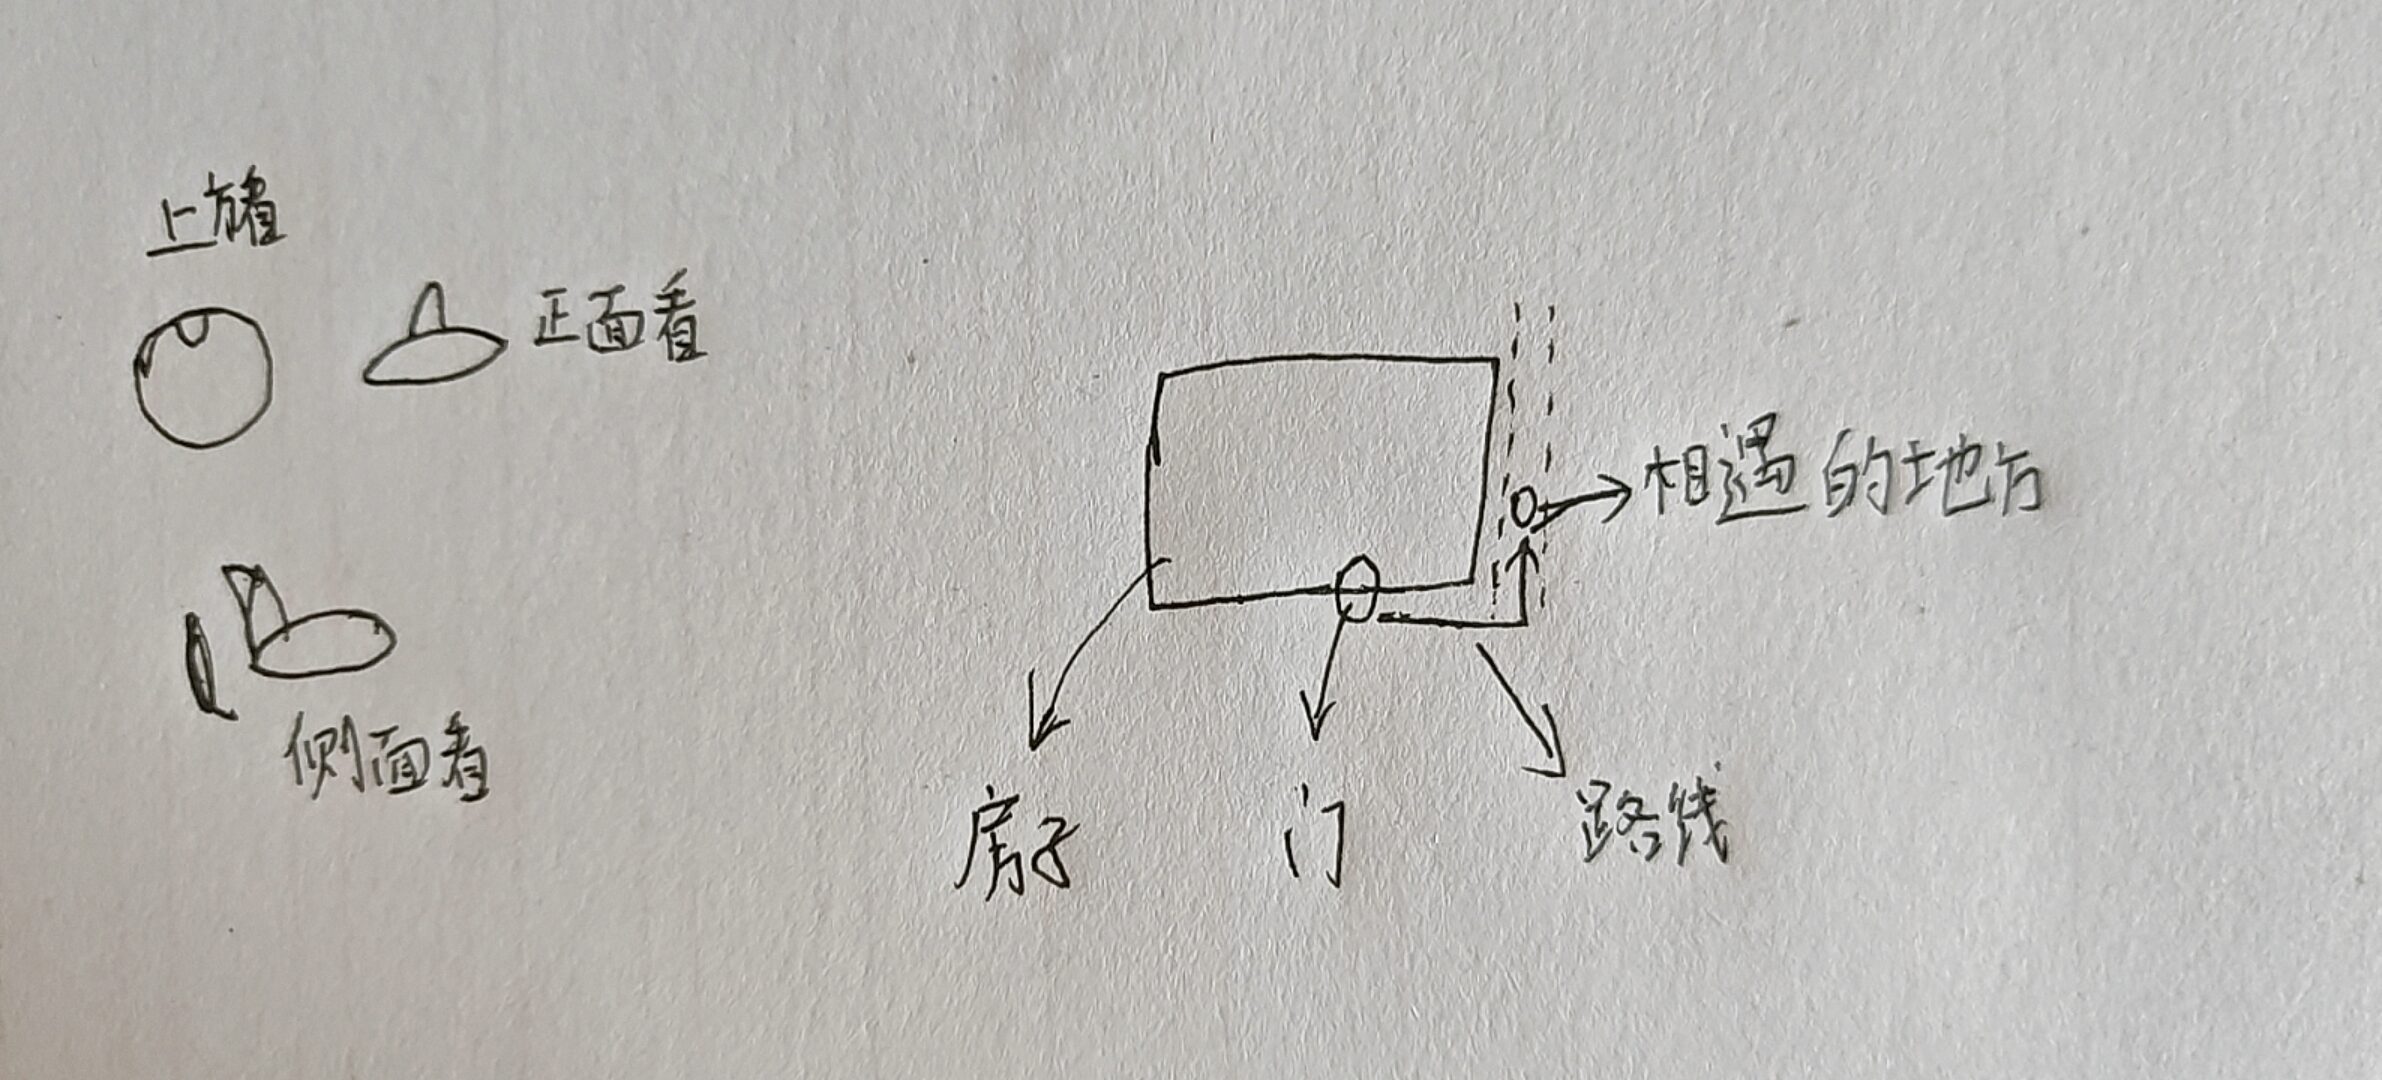 上方看
正面看
侧面看
相遇的地方
房子
门
路线